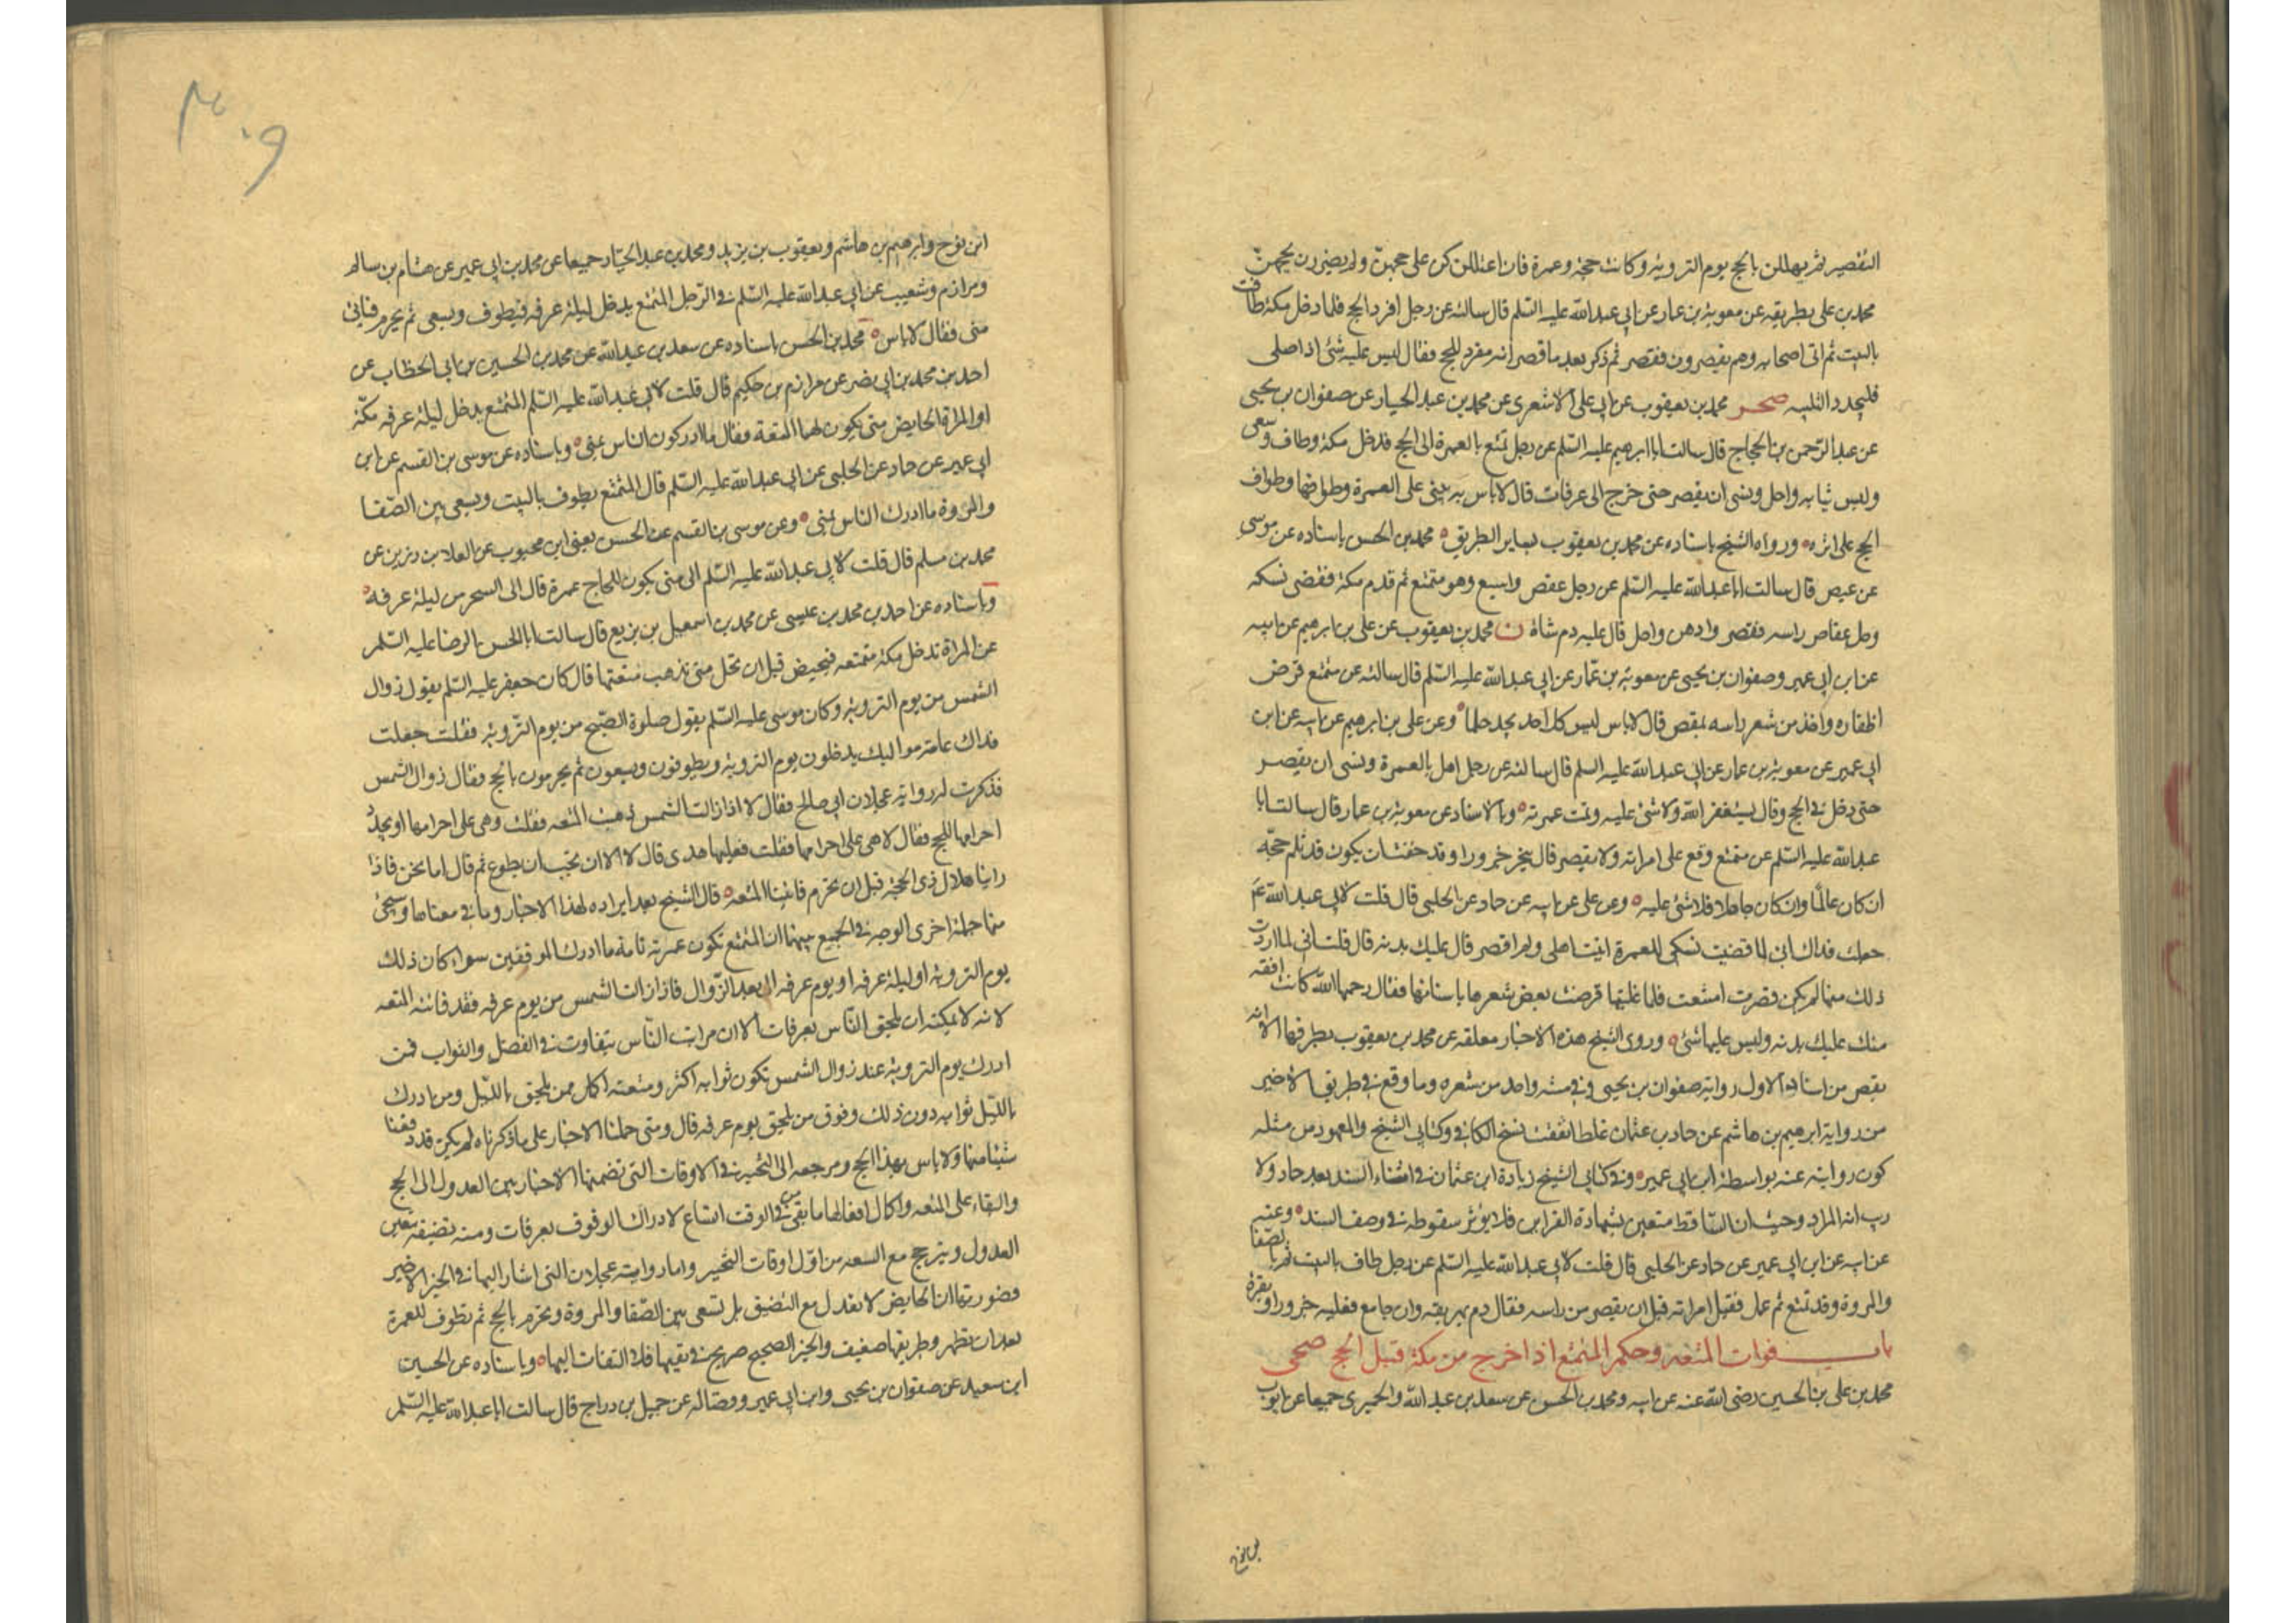 التقصير ثم يهللن بالحج يوم التروية وكانت حجة وعمرة فان اعتللن كن على حجهن ولم يضررن بحجهن
محمد بن على بطريقه عن معوية بن عمار عن ابي عبد الله عليه السلم قال سالته عن رجل افرد الحج فلما دخل مكة طاف
بالبيت ثم اتى اصحابه وهم يقصرون فقصر ثم ذكر بعد ما قصر انه مفرد للحج فقال ليس عليه شئ اذا صلى
فليجدد التلبية صحر محمد بن يعقوب عن ابي على الاشعرى عن محمد بن عبد الجبار عن صفوان بن يحيى
عن عبد الرحمن بن الحجاج قال سالت ابا ابرهيم عليه السلم عن رجل تمتع بالعمرة الى الحج فدخل مكة وطاف وسعى
ولبس ثيابه واحل ونسى ان يقصر حتى خرج الى عرفات قال لا باس به يبنى على العمرة وطوافها وطواف
الحج على اثره ورواه الشيخ باسناده عن محمد بن يعقوب بساير الطريق محمد بن الحسن باسناده عن موسى
عن عيص قال سالت ابا عبد الله عليه السلم عن رجل عقص راسه وهو متمتع ثم قدم مكة فقضى نسكه
وحل عقاص راسه فقصر وادهن واحل قال عليه دم شاة ن محمد بن يعقوب عن على بن ابرهيم عن ابيه
عن ابن ابي عمير وصفوان بن يحيى عن معوية بن عمار عن ابي عبد الله عليه السلم قال سالته عن متمتع قرض
اظفاره واخذ من شعر راسه بمقص قال لا باس ليس كل احد يجد جلما وعن على بن ابرهيم عن ابيه عن ابن
ابي عمير عن معوية بن عمار عن ابي عبد الله عليه السلم قال سالته عن رجل اهل بالعمرة ونسى ان يقصر
حتى دخل في الحج وقال يستغفر الله ولا شئ عليه وتمت عمرته وبالاسناد عن معوية بن عمار قال سالت ابا
عبد الله عليه السلم عن متمتع وقع على امراته ولم يقصر قال ينحر جزورا وقد خفت ان يكون قد ثلم حجه
ان كان عالما وان كان جاهلا فلا شئ عليه وعن على عن ابيه عن حماد عن الحلبى قال قلت لابي عبد الله ع
جعلت فداك انى لما قضيت نسكى للعمرة اتيت اهلى ولم اقصر قال عليك بدنة قال قلت انى لما اردت
ذلك منها لم يكن قصرت امتنعت فلما غلبتها قرضت بعض شعرها باسنانها فقال رحمها الله كانت افقه
منك عليك بدنة وليس عليها شئ وروى الشيخ هذه الاخبار معلقة عن محمد بن يعقوب بطرقها الا انه
نقص من اسناد الاول رواية صفوان بن يحيى وفي متنه واحد من شعره وما وقع في طريق الاخير
من رواية ابرهيم بن هاشم عن حماد بن عثمان غلط اتفقت نسخ الكافي وكتابي الشيخ والمعهود من مثله
كون روايته عنه بواسطة ابن ابي عمير وفي كتابي الشيخ زيادة ابن عثمان في اثناء السند بعد حماد ولا
ريب انه المراد وحيث ان الساقط متعين بشهادة القراين فلا يؤثر سقوطه في وصف السند وعنه
عن ابيه عن ابن ابي عمير عن حماد عن الحلبى قال قلت لابي عبد الله عليه السلم عن رجل طاف بالبيت ثم بالصفا
والمروة وقد تمتع ثم عجل فقبل امراته قبل ان يقصر من راسه فقال دم يهريقه وان جامع فعليه جزور او بقرة
باب فوات المتعة وحكم المتمتع اذا خرج من مكة قبل الحج صحى
محمد بن على بن الحسين رضى الله عنه عن ابيه ومحمد بن الحسن عن سعد بن عبد الله والحميرى جميعا عن ايوب
بن نوح
٣٠٩
ابن نوح وابرهيم بن هاشم ويعقوب بن يزيد ومحمد بن عبد الجبار جميعا عن محمد بن ابي عمير عن هشام بن سالم
ومرازم وشعيب عن ابي عبد الله عليه السلم في الرجل المتمتع يدخل ليلة عرفة فيطوف ويسعى ثم يحرم فياتى
منى فقال لا باس محمد بن الحسن باسناده عن سعد بن عبد الله عن محمد بن الحسين بن ابي الخطاب عن
احمد بن محمد بن ابي نصر عن مرازم بن حكيم قال قلت لابي عبد الله عليه السلم المتمتع يدخل ليلة عرفة مكة
او المراة الحايض متى يكون لهما المتعة فقال ما ادركون الناس بمنى وباسناده عن موسى بن القسم عن ابن
ابي عمير عن حماد عن الحلبى عن ابي عبد الله عليه السلم قال المتمتع يطوف بالبيت ويسعى بين الصفا
والمروة ما ادرك الناس بمنى وعن موسى بن القسم عن الحسن يعنى ابن محبوب عن العلا بن رزين عن
محمد بن مسلم قال قلت لابي عبد الله عليه السلم الى متى يكون للحاج عمرة قال الى السحر من ليلة عرفة
وباسناده عن احمد بن محمد بن عيسى عن محمد بن اسمعيل بن بزيع قال سالت ابا الحسن الرضا عليه السلم
عن المراة تدخل مكة متمتعة فتحيض قبل ان تحل متى تذهب متعتها قال كان جعفر عليه السلم يقول زوال
الشمس من يوم التروية وكان موسى عليه السلم يقول صلوة الصبح من يوم التروية فقلت جعلت
فداك عامة مواليك يدخلون يوم التروية ويطوفون ويسعون ثم يحرمون بالحج فقال زوال الشمس
فذكرت له رواية عجلان ابي صالح فقال لا اذا زالت الشمس ذهبت المتعة فقلت وهى على احرامها او تجدد
احرامها للحج فقال لا هى على احرامها فقلت فعليها هدى قال لا الا ان تحب ان تطوع ثم قال اما نحن فاذا
راينا هلال ذى الحجة قبل ان نحرم فاتتنا المتعة قال الشيخ بعد ايراده لهذا الاخبار وما في معناها وسيجئ
منها جملة اخرى الوجه في الجميع بينها ان المتمتع تكون عمرته تامة ما ادرك الموقفين سواء كان ذلك
يوم التروية او ليلة عرفة او يوم عرفة الى بعد الزوال فاذا زالت الشمس من يوم عرفة فقد فاتته المتعة
لانه لا يمكنه ان يلحق الناس بعرفات الا ان مراتب الناس تتفاوت في الفضل والثواب فمن
ادرك يوم التروية عند زوال الشمس تكون ثوابه اكثر ومتعته اكمل ممن يلحق بالليل ومن ادرك
بالليل ثوابه دون ذلك وفوق من يلحق يوم عرفة قال ومتى حملنا الاخبار على ما ذكرناه لم يكن قد دفعنا
شيئا منها ولا باس بهذا الحج ومرجعه الى التخيير في الاوقات التى تضمنها الاخبار بين العدول الى الحج
والبقاء على المتعة واكمال افعالها ما بقى من في الوقت اتساع لادراك الوقوف بعرفات ومنه تضيقه تعين
العدول ويترجح مع السعة من اول اوقات التخيير واما رواية عجلان التى اشار اليها في الخبر الاخير
فضورتها ان الحايض لا تعدل مع التضيق بل تسعى بين الصفا والمروة وتحرم بالحج ثم تطوف للعمرة
بعد ان تطهر وطريقها ضعيف والخبر الصحيح صريح في نفيها فلا التفات اليها وباسناده عن الحسين
ابن سعيد عن صفوان بن يحيى وابن ابي عمير وفضالة عن جميل بن دراج قال سالت ابا عبد الله عليه السلم